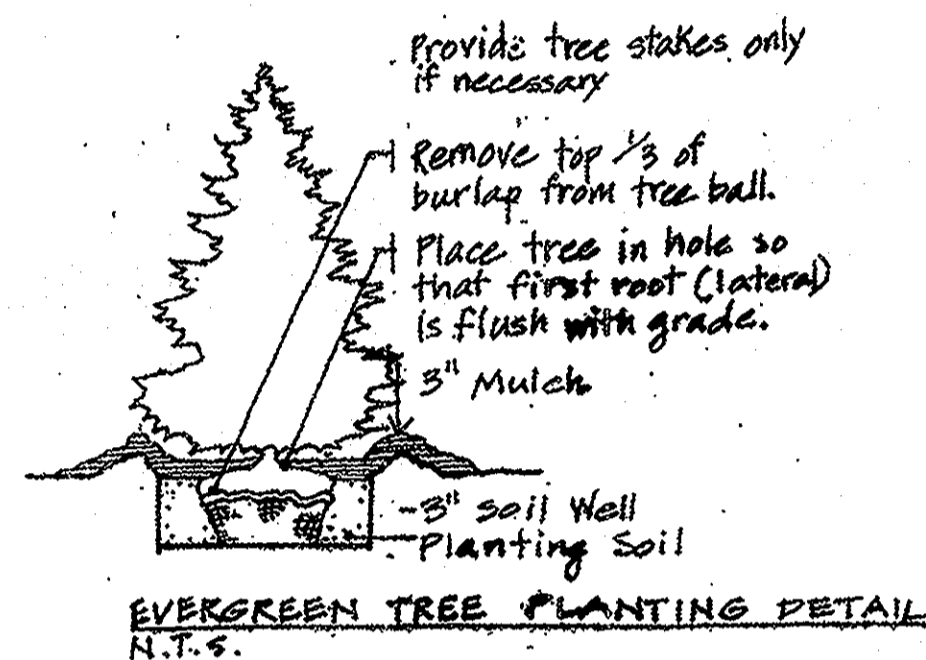 Provide tree stakes only
if necessary
Remove top 1/3 of
burlap from tree ball.
Place tree in hole so
that first root (lateral)
is flush with grade.
3" Mulch
3" Soil Well
Planting Soil
EVERGREEN TREE PLANTING DETAIL
N.T.S.